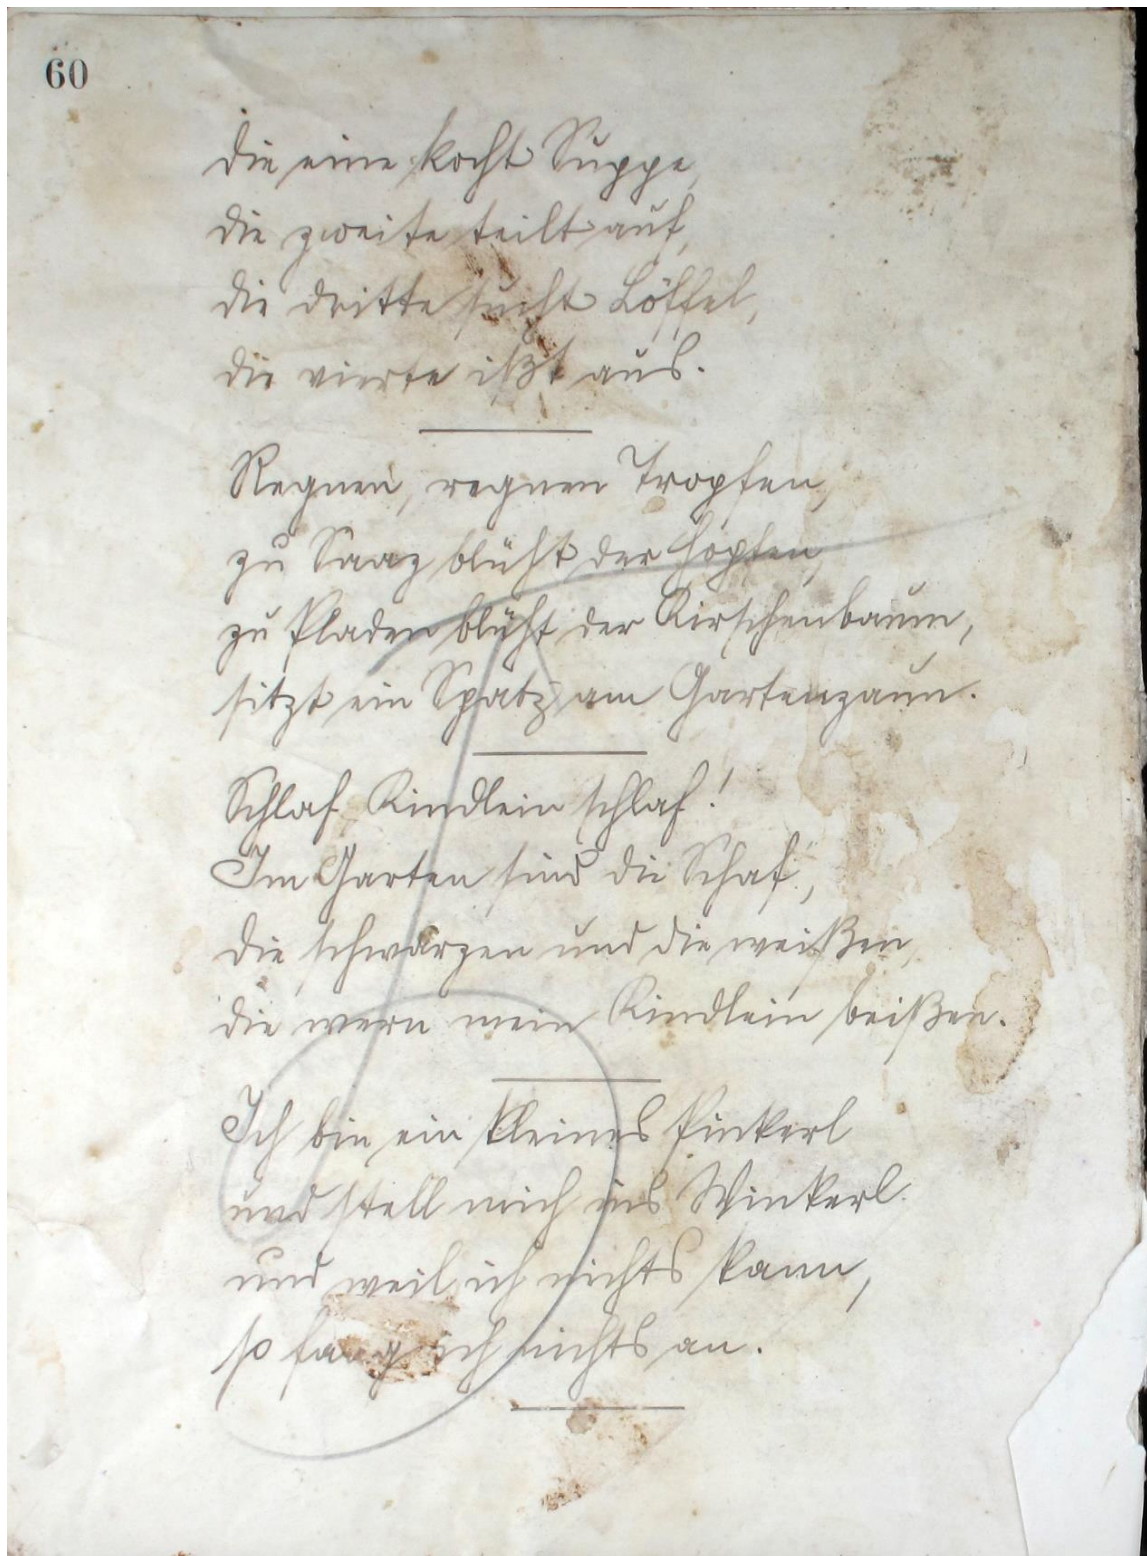 60
die eine kocht Suppe,
die zweite teilt auf,
die dritte sucht Löffel,
die vierte ißt aus.
Regnen, regnen Tropfen,
zu Saaz blüht der Hopfen,
zu Pladen blüht der Kirschenbaum,
sitzt ein Spatz am Gartenzaun.
Schlaf Kindlein schlaf!
Im Garten sind die Schaf,
die schwarzen und die weißen,
die wern mein Kindlein beißen.
Ich bin ein kleines Pinkerl
und stell mich ins Winkerl
und weil ich nichts kann,
so fang ich nichts an.